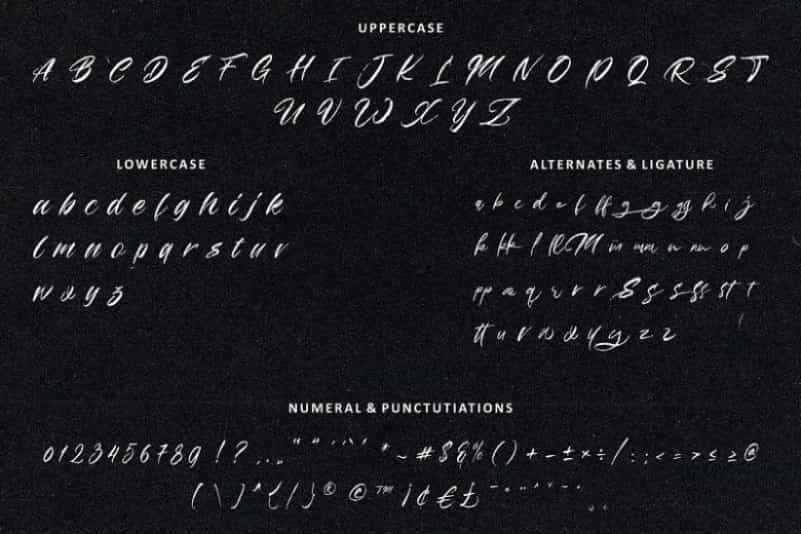 UPPERCASE
A B C D E F G H I J K L M N O P Q R S T
U V W X Y Z
LOWERCASE
a b c d e f g h i j k
l m n o p q r s t u v
w x y z
ALTERNATES & LIGATURE
a b c d e f ff g g gg h i j
k kk l ll M m mm n nn o p
pp a q r r r S s s ss st t
tt u v w x y y z z
NUMERAL & PUNCTUTIATIONS
0 1 2 3 4 5 6 7 8 9 ! ? . , „ " " ' ' * ~ # $ & % ( ) + - ± × ÷ / : ; < = > ≤ ≥ @
( \ ) ^ { / } ® © ™ ¡ ¢ € £